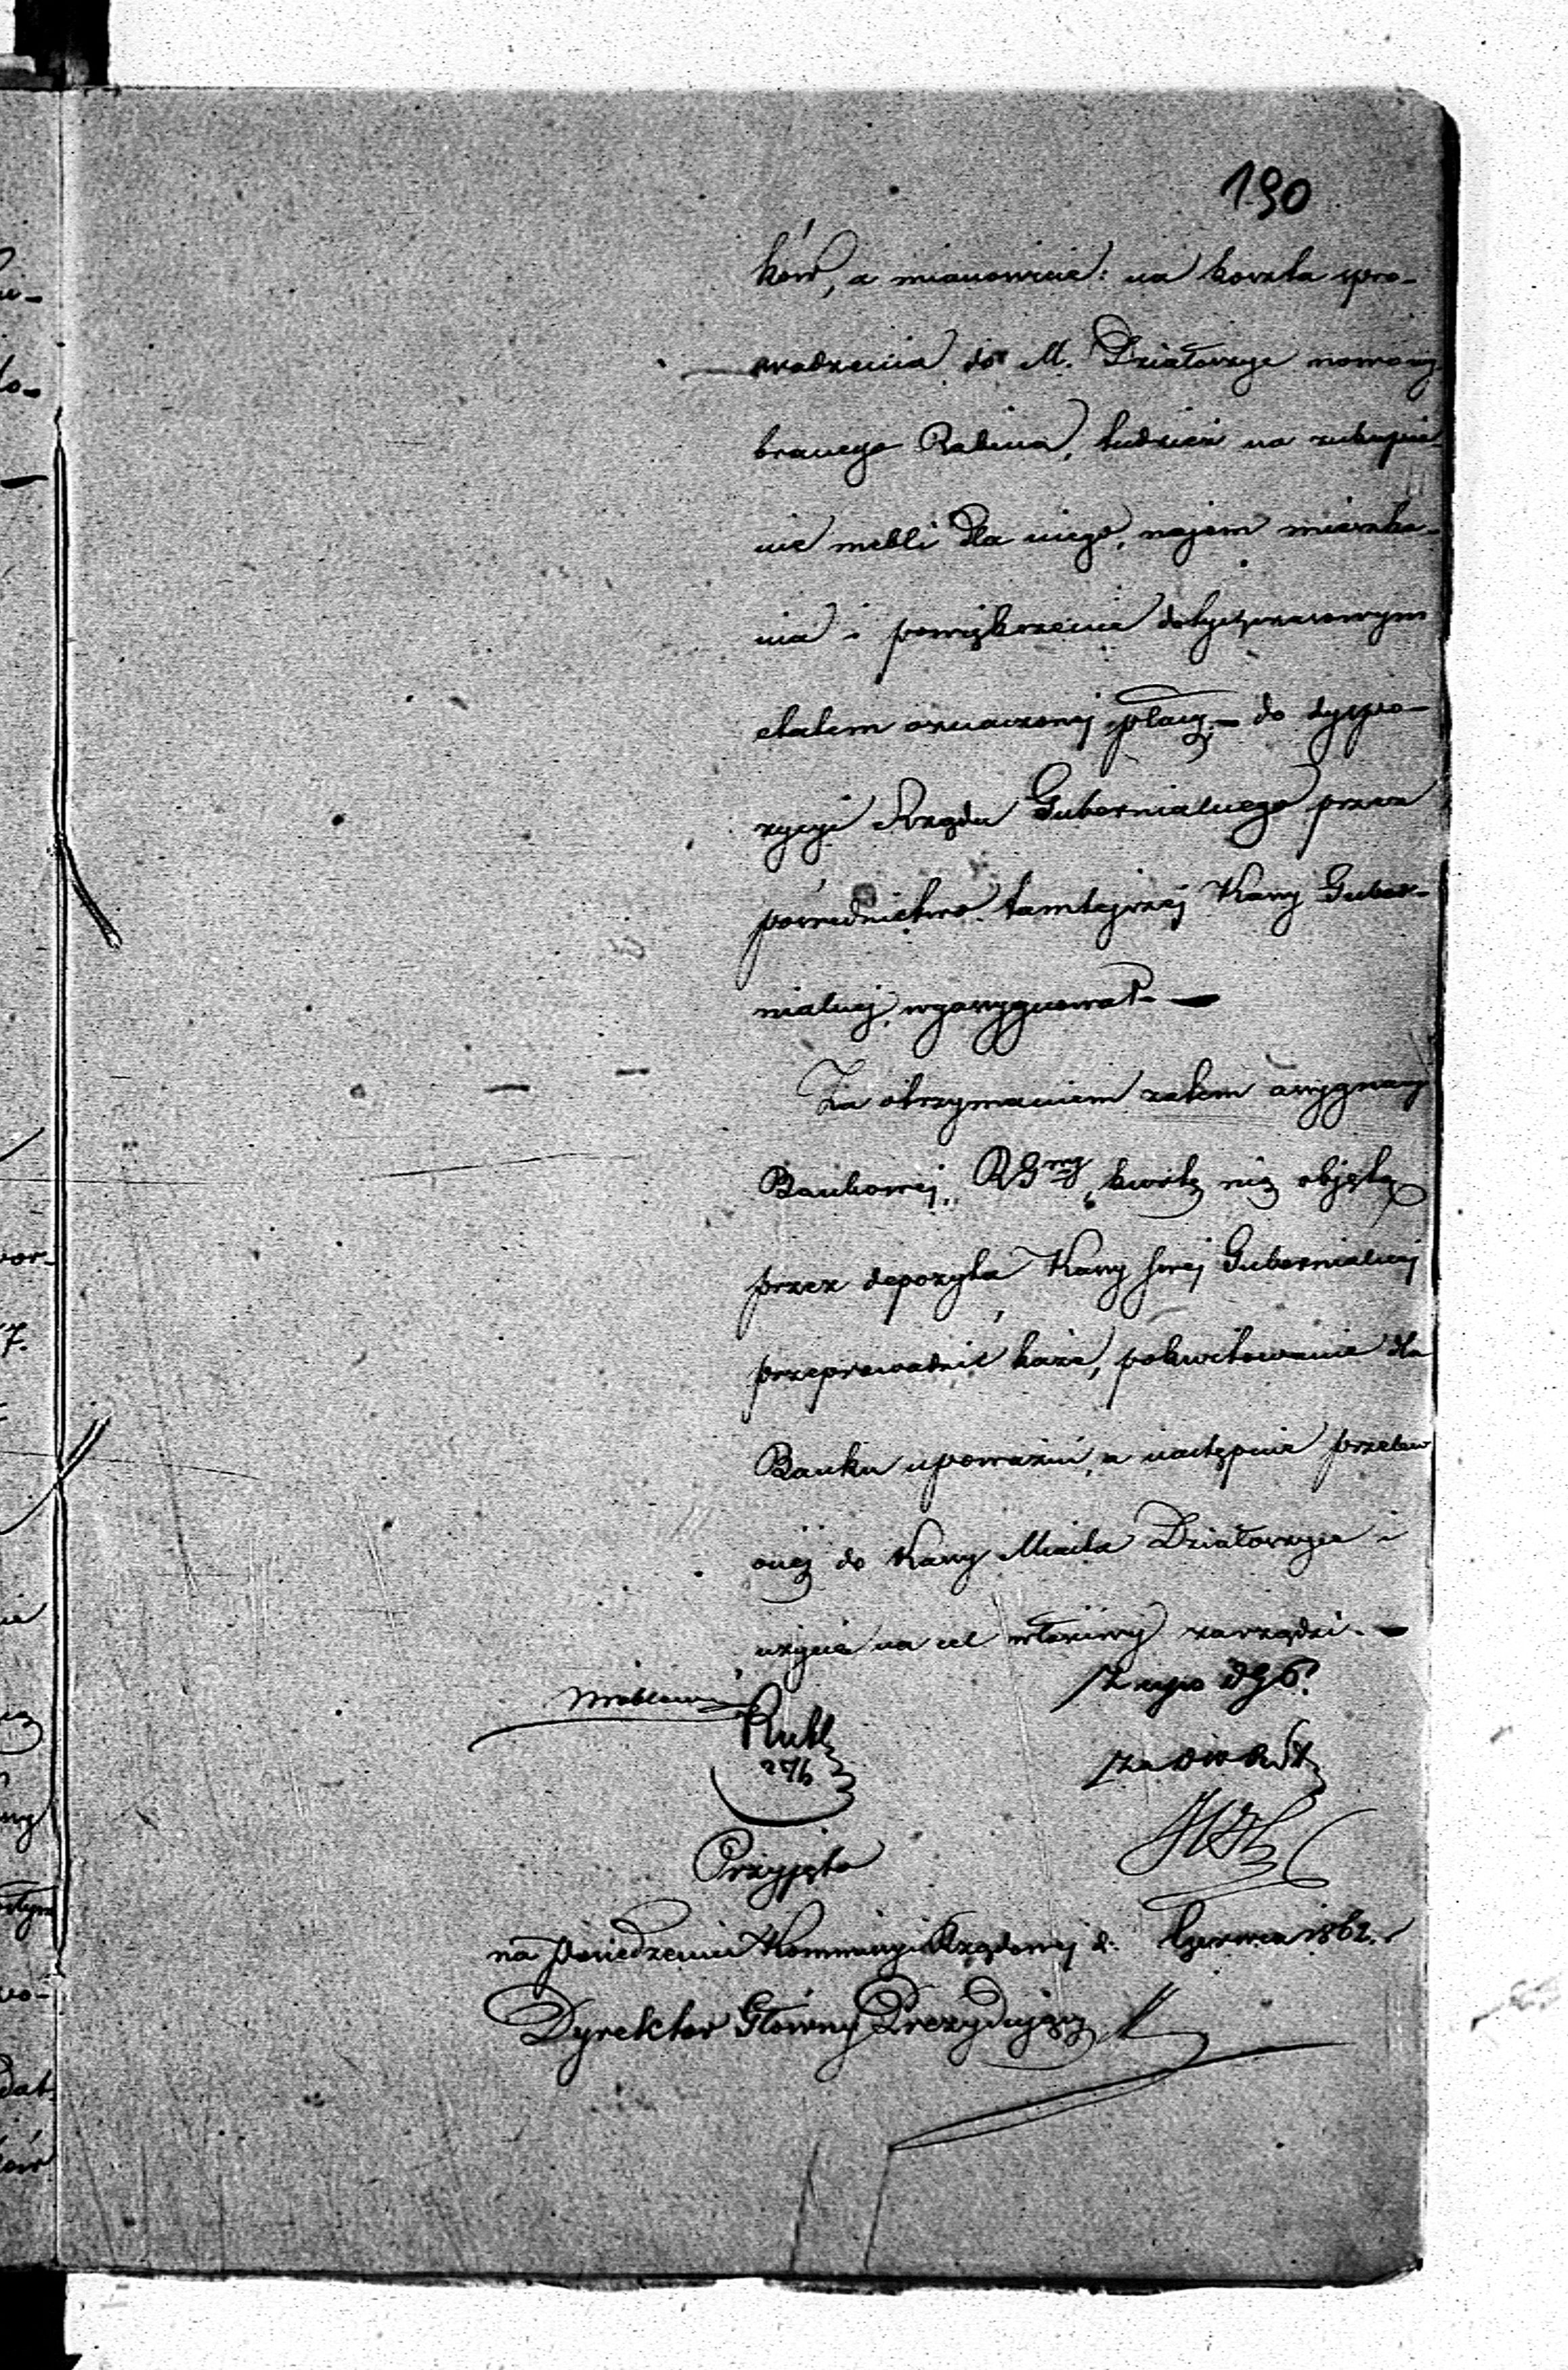 190
ków, a mianowicie: na koszta spro-
wadzenia do M. Działoszyc nowowy
branego Rabina, tudzież na zakupie-
nie mebli dla niego, najem mieszka-
nia i powiększenie dotychczasowym
etatem oznaczonej płacy — do dyspo-
zycyi Rządu Gubernialnego przez
pośrednictwo tamtejszej Kassy Guber-
nialnej, wyassygnował. —
Za otrzymaniem zatem assygnacyi
Bankowej, RGny kwotę nią objętą
przez depozyta Kassy swej Gubernialnej
przeprowadzić każe, pokwitowanie dla
Banku upoważni, a następnie przelew
onej do Kassy Miasta Działoszyce i
użycie na cel właściwy zarządzi. —
276
Przyjęto
na posiedzeniu Kommissyi Rządowej d. Czerwca 1862 r
Dyrektor Główny Prezydujący